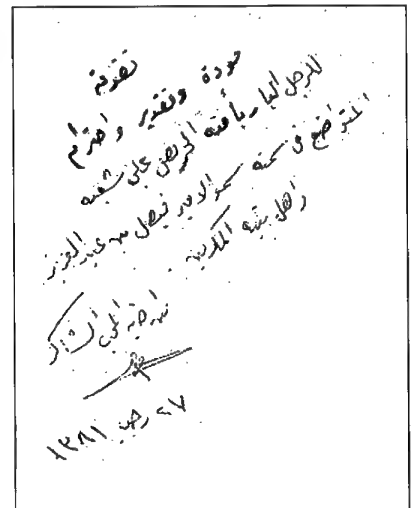 تقدمة
مودة وتقدير واحترام
للرجل البار بأمته الحريص على شعبه
المتواضع في سمته سمو الامير فيصل بن عبد العزيز
واهل بيته المكرمين
من اخيه المحب الشاكر
٢٧ رجب ١٣٨١